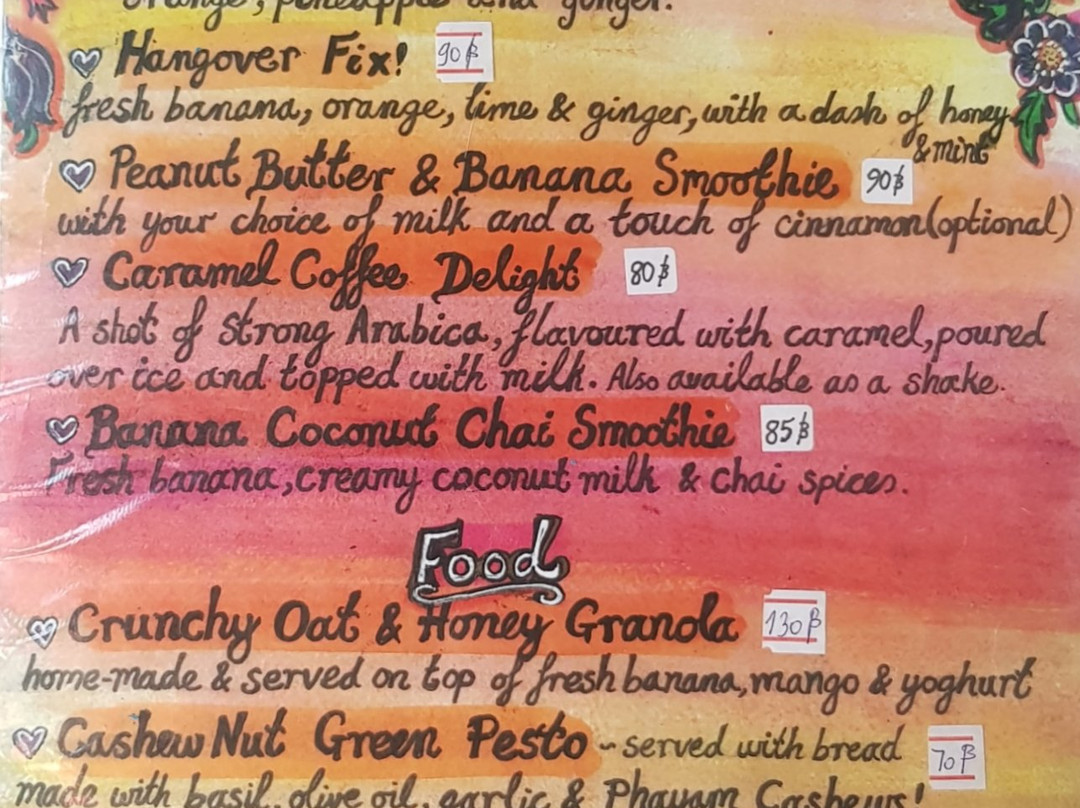 orange, pineapple and ginger.
Hangover Fix! 90฿
fresh banana, orange, lime & ginger, with a dash of honey
& mint
Peanut Butter & Banana Smoothie 90฿
with your choice of milk and a touch of cinnamon (optional)
Caramel Coffee Delight 80฿
A shot of strong Arabica, flavoured with caramel, poured
over ice and topped with milk. Also available as a shake.
Banana Coconut Chai Smoothie 85฿
Fresh banana, creamy coconut milk & chai spices.
Food
Crunchy Oat & Honey Granola 130฿
home-made & served on top of fresh banana, mango & yoghurt
Cashew Nut Green Pesto ~ served with bread 70฿
made with basil, olive oil, garlic & Phayam Cashews!